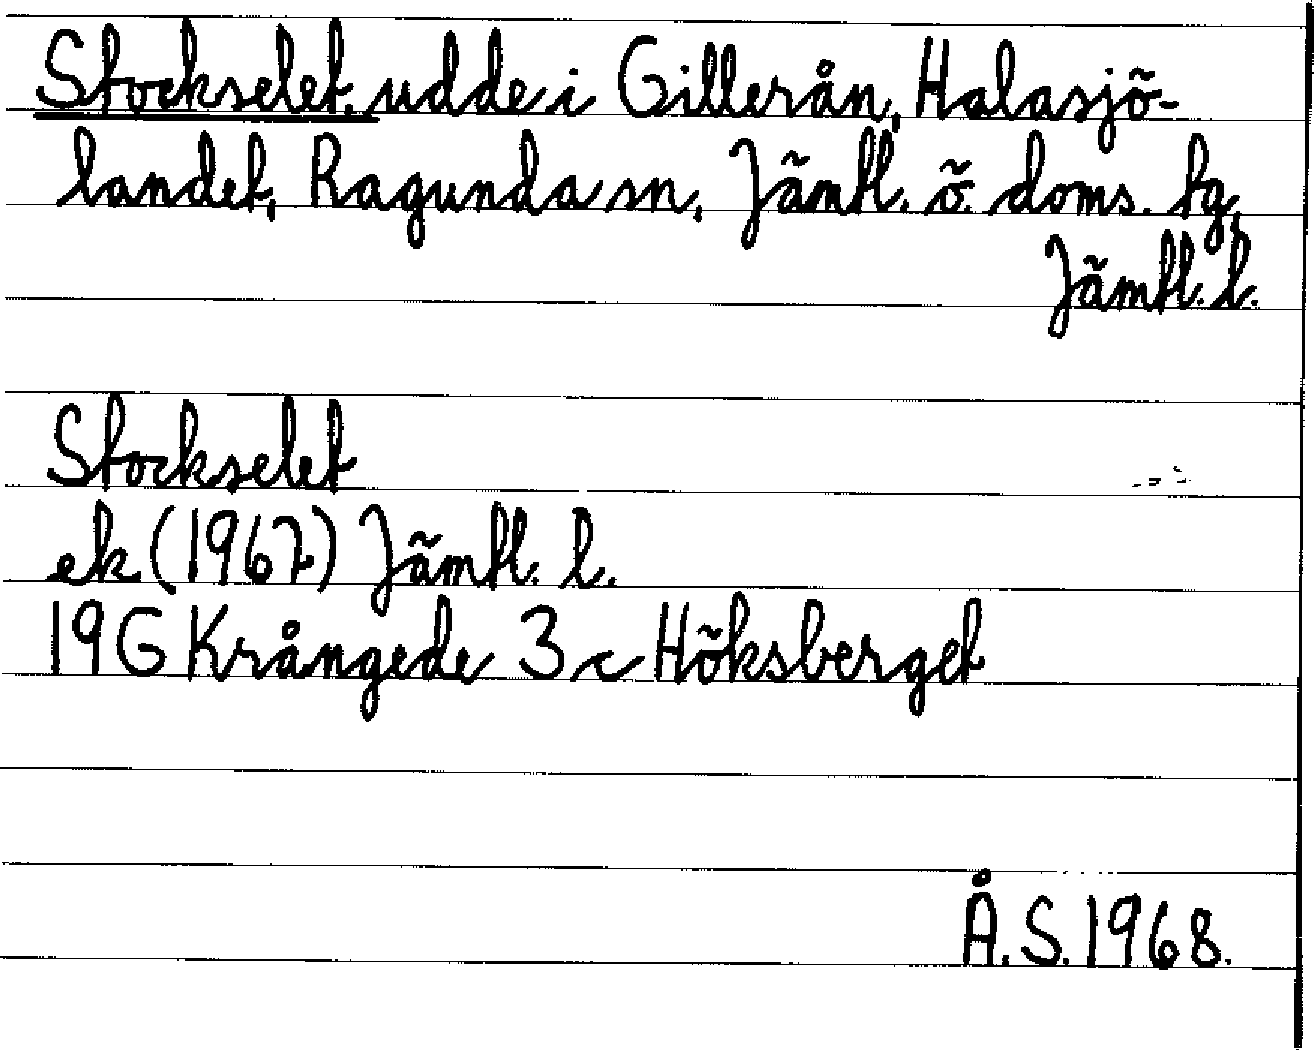 Stockselet. udde i Gillerån, Halasjö-
landet, Ragunda sn, Jämtl. ö. doms. tg,
Jämtl. l.
Stockselet
ek (1967) Jämtl. l.
19G Krångede 3 c Höksberget
Å. S. 1968.